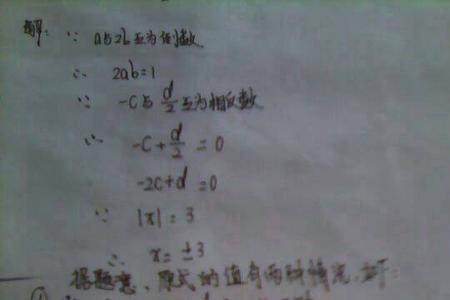 解: ∵ a与2b互为倒数
∴ 2ab=1
∵ -c与d/2互为相反数
∴ -c+d/2=0
-2c+d=0
∵ |x|=3
∴ x=±3
据题意、原式的值有两种情况,